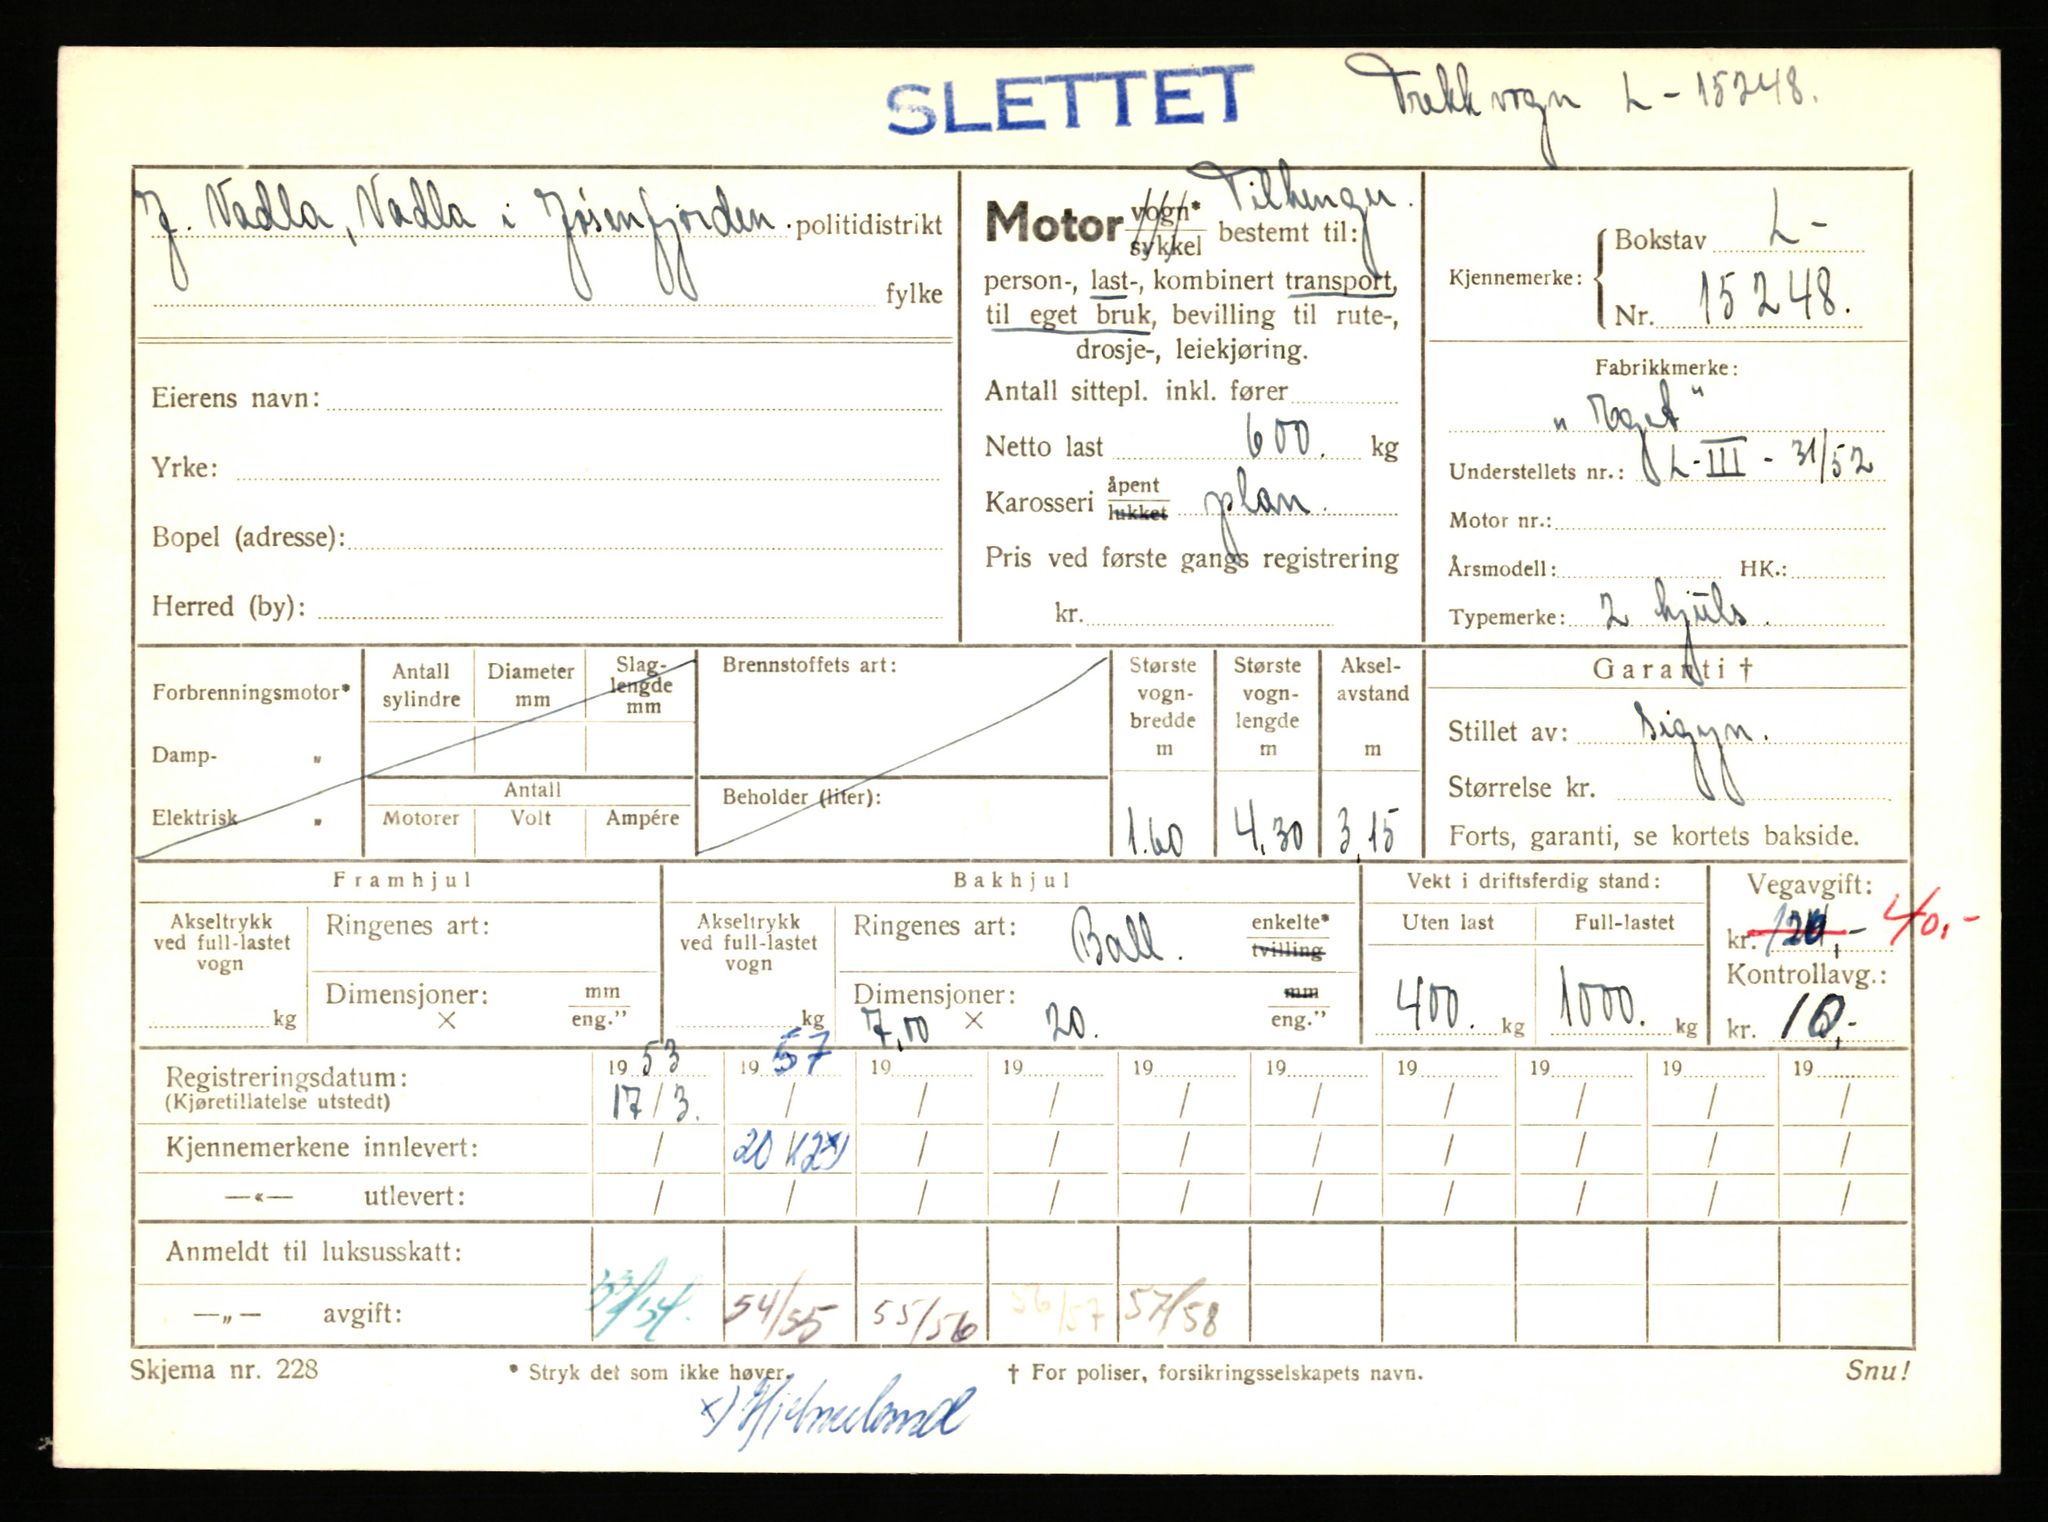 SLETTET
Trekkvogn L - 15248.
J. Vadla, Vadla i Jøsenfjorden. politidistrikt
fylke
Eierens navn:
Yrke:
Bopel (adresse):
Herred (by):
Tilhenger.
Motor vogn* sykkel bestemt til:
person-, last-, kombinert transport,
til eget bruk, bevilling til rute-,
drosje-, leiekjøring.
Antall sittepl. inkl. fører
Netto last 600. kg
Karosseri åpent lukket plan.
Pris ved første gangs registrering
kr.
Kjennemerke: Bokstav L-
Nr. 15248.
Fabrikkmerke:
„ Eget “
Understellets nr.: L-III - 31/52
Motor nr.:
Årsmodell: HK.:
Typemerke: 2 hjuls.
Forbrenningsmotor*
Damp- „
Elektrisk „
Antall sylindre
Diameter mm
Slag-lengde mm
Antall
Motorer Volt Ampére
Brennstoffets art:
Beholder (liter):
Største vogn-bredde m
1.60
Største vogn-lengde m
4,30
Aksel-avstand m
3,15
Garanti †
Stillet av: Sigyn.
Størrelse kr.
Forts, garanti, se kortets bakside.
Framhjul
Akseltrykk ved full-lastet vogn
kg
Ringenes art:
Dimensjoner: mm
× eng.”
Bakhjul
Akseltrykk ved full-lastet vogn
kg
Ringenes art: Ball. enkelte* tvilling
Dimensjoner: mm
7,00 × 20. eng.”
Vekt i driftsferdig stand:
Uten last Full-lastet
400. kg 1000. kg
Vegavgift:
kr. 120,- 40,-
Kontrollavg.:
kr. 10,-
Registreringsdatum: 19 53 19 57 19 19 19 19 19 19 19 19
(Kjøretillatelse utstedt) 17/3. / / / / / / / / /
Kjennemerkene innlevert: / 20/12 x) / / / / / / / /
—«— utlevert: / / / / / / / / / /
Anmeldt til luksusskatt:
—„— avgift: 53/54. 54/55 55/56 56/57 57/58
Skjema nr. 228 * Stryk det som ikke høver. † For poliser, forsikringsselskapets navn. Snu!
x) Hjelmeland